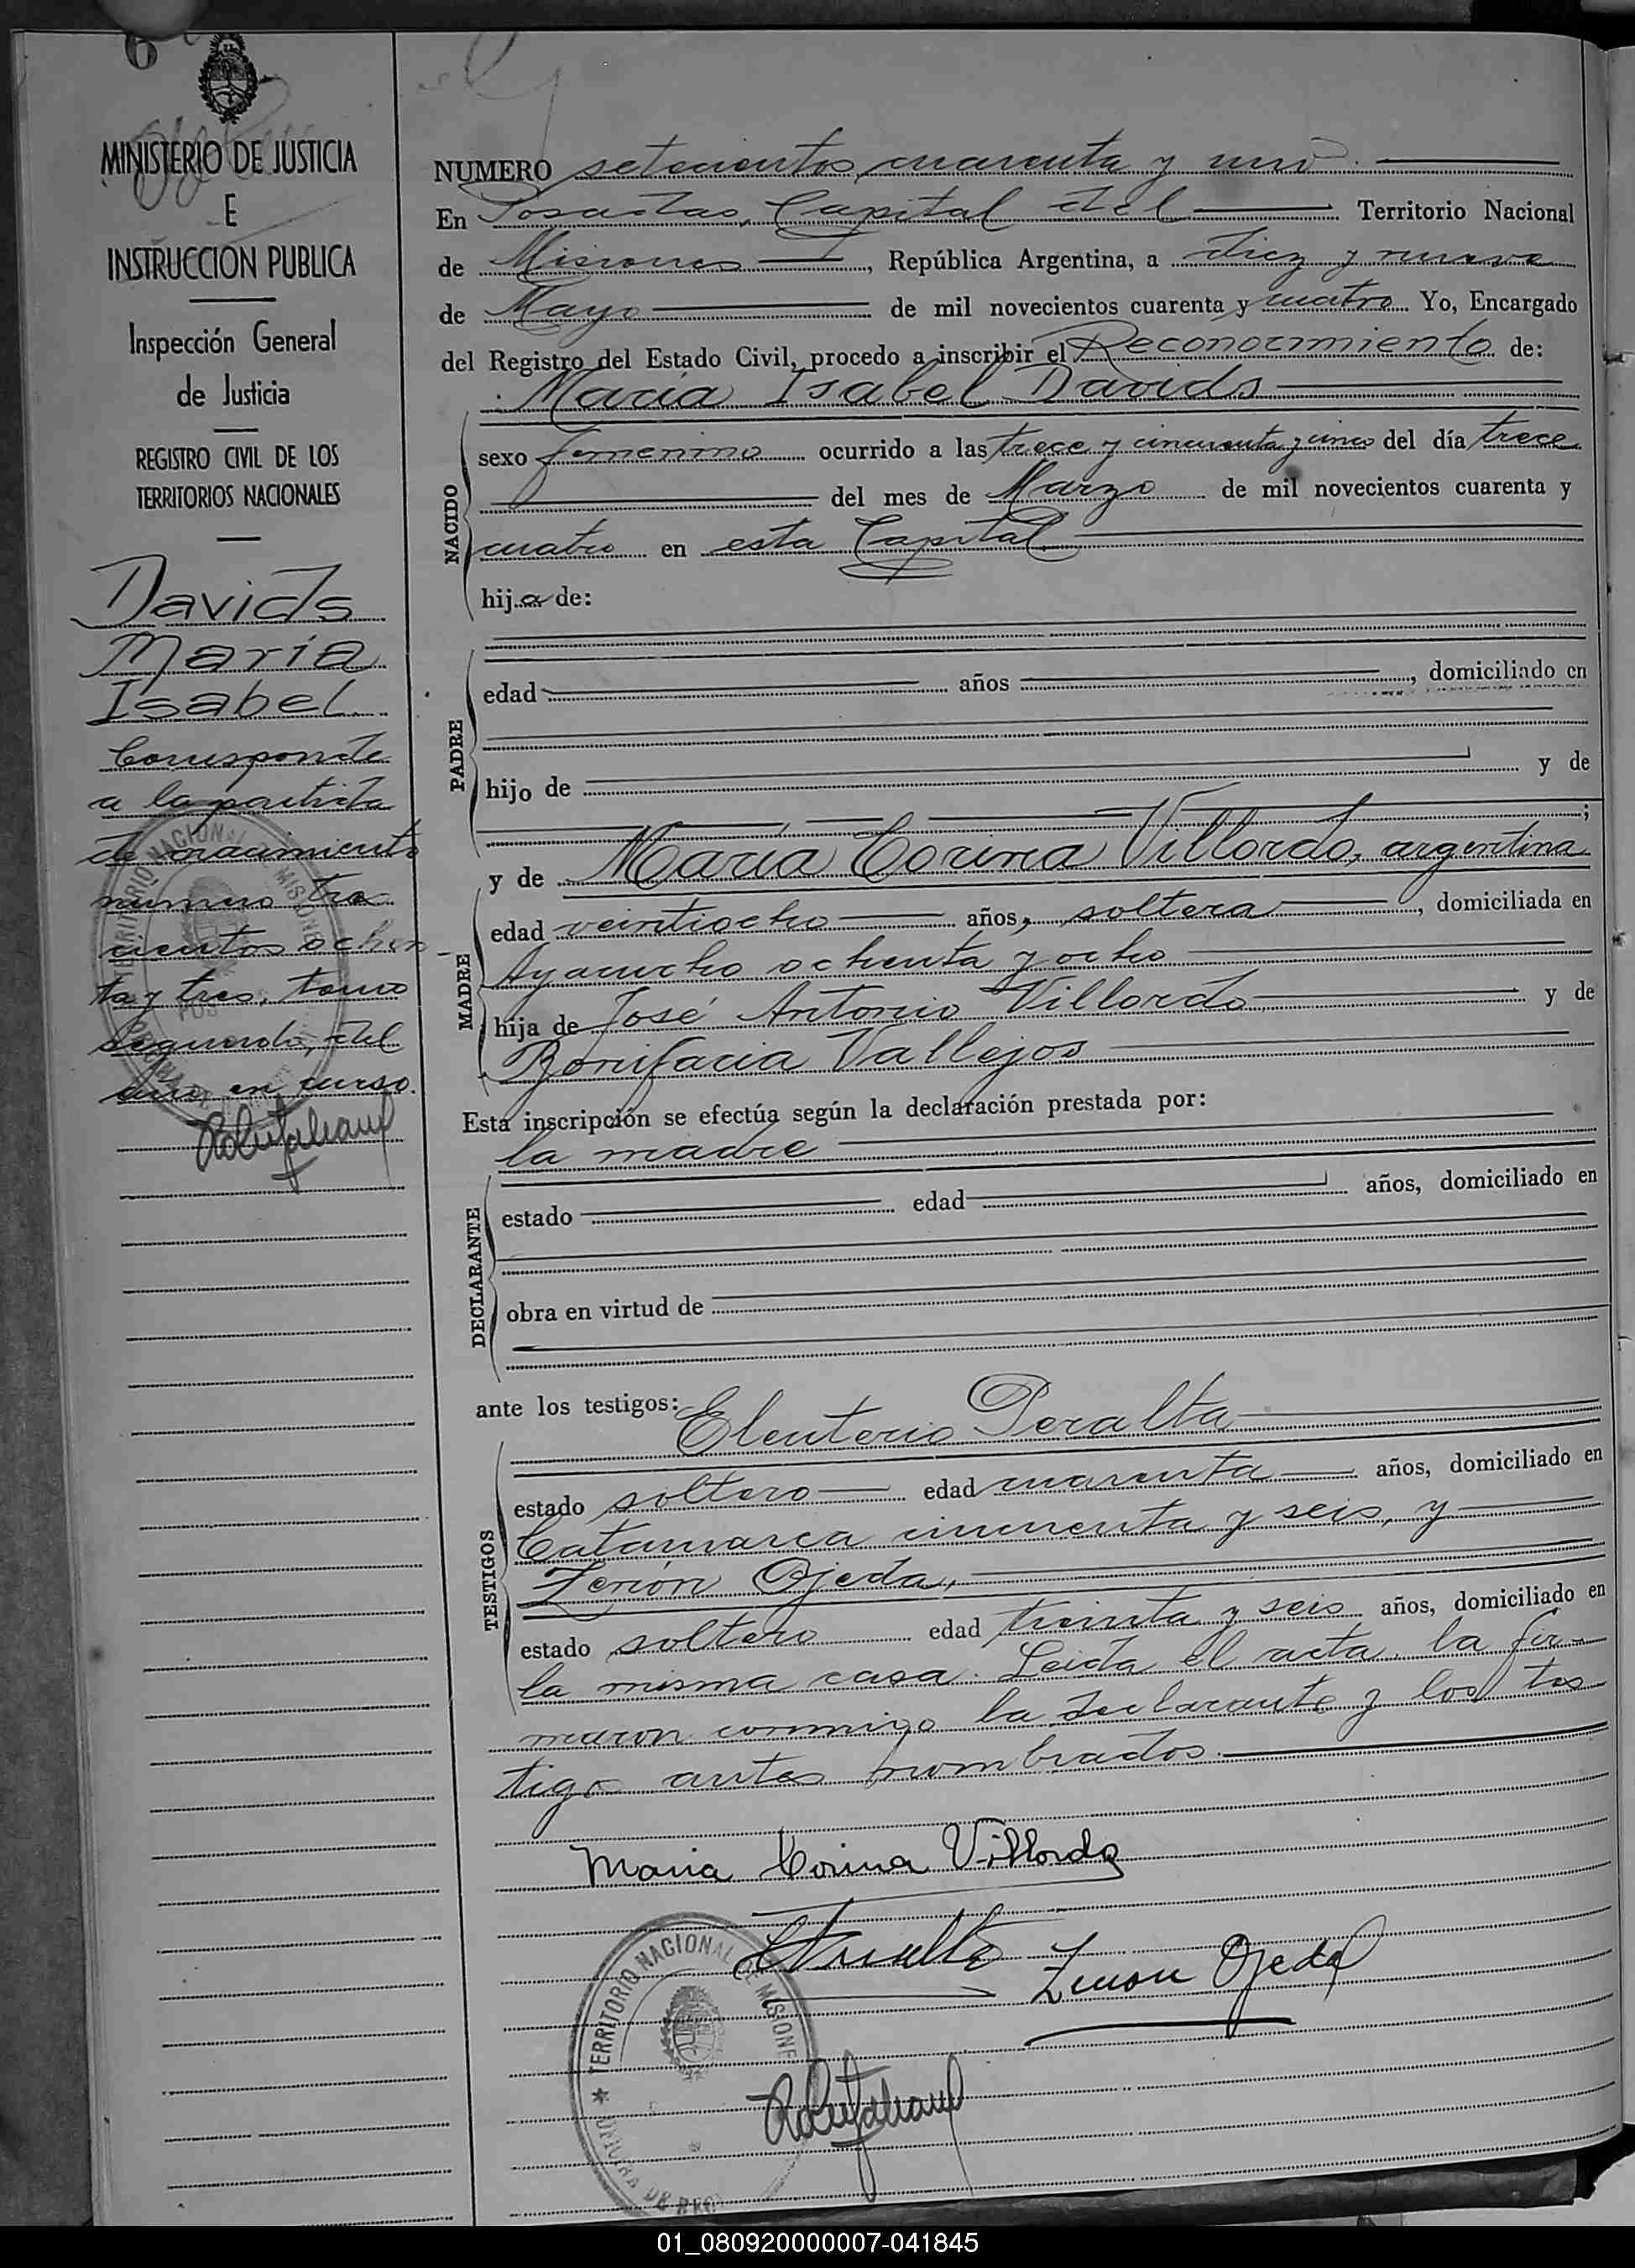 6
MINISTERIO DE JUSTICIA
E
INSTRUCCION PUBLICA
Inspección General
de Justicia
REGISTRO CIVIL DE LOS
TERRITORIOS NACIONALES
Davids
María
Isabel
Corresponde
a la partida
de nacimiento
numero tres
cientos ochen
ta y tres, tomo
segundo, del
año en curso.
NUMERO setecientos cuarenta y uno.
En Posadas, Capital del Territorio Nacional
de Misiones, República Argentina, a diez y nueve
de Mayo de mil novecientos cuarenta y cuatro Yo, Encargado
del Registro del Estado Civil, procedo a inscribir el Reconocimiento de:
María Isabel Davids
NACIDO
sexo femenino ocurrido a las trece y cincuenta y cinco del día trece
del mes de Marzo de mil novecientos cuarenta y
cuatro en esta Capital
hija de:
PADRE
edad años, domiciliado en
hijo de y de
;
y de María Corina Villordo, argentina
MADRE
edad veintiocho años, soltera, domiciliada en
Ayacucho ochenta y ocho
hija de José Antonio Villordo y de
Bonifacia Vallejos
Esta inscripción se efectúa según la declaración prestada por:
la madre
DECLARANTE
estado edad años, domiciliado en
obra en virtud de
ante los testigos: Eleuterio Peralta
TESTIGOS
estado soltero edad cuarenta años, domiciliado en
Catamarca cincuenta y seis, y
Zenón Ojeda,
estado soltero edad treinta y seis años, domiciliado en
la misma casa. Leida el acta, la fir-
maron conmigo la declarante y los tes
tigos antes nombrados.
Maria Corina Villordo
Zenon Ojeda
TERRITORIO NACIONAL DE MISIONE
01_080920000007-041845